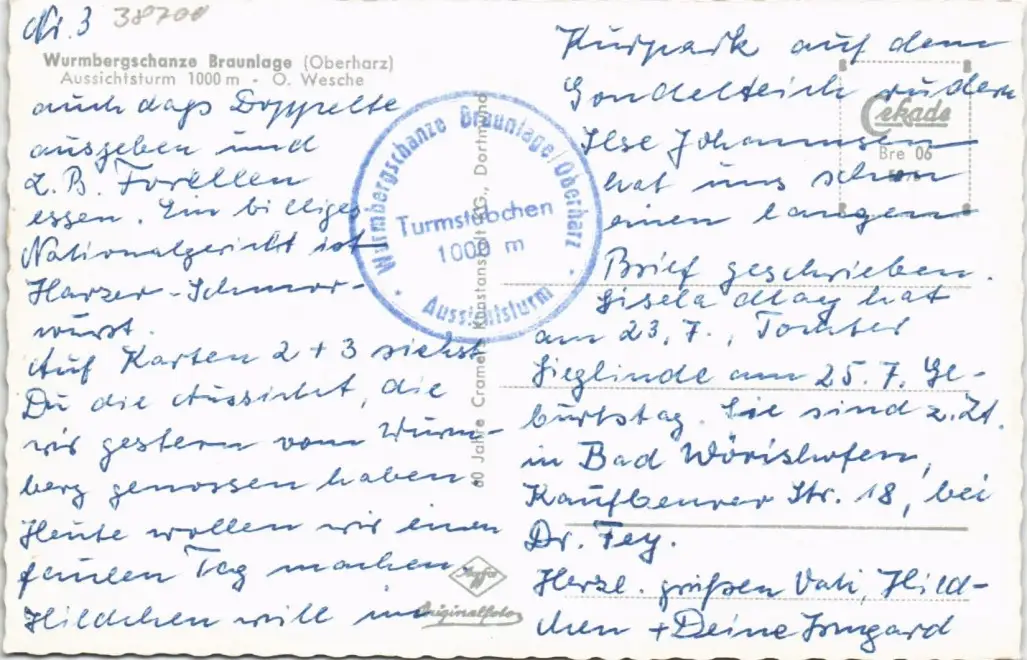 Nr. 3 38700
Wurmbergschanze Braunlage (Oberharz)
Aussichtsturm 1000 m - O. Wesche
auch dass Doppelte
ausgeben und
z.B. Forellen
essen. Ein billiges
Nationalgericht ist
Harzer-Schmor-
wurst.
Auf Karten 2 + 3 siehst
Du die Aussicht, die
wir gestern vom Wurm-
berg genossen haben.
Heute wollen wir einen
faulen Tag machen.
Hildchen will im
Wurmbergschanze Braunlage/Oberharz
Turmstübchen
1000 m
Aussichtsturm
60 Jahre Cramers Kunstanstalt KG., Dortmund
Agfa
Originalfoto
Kurpark auf dem
Gondelteich rudern
Ilse Johannsen
hat uns schon
einen langen
Brief geschrieben.
Gisela May hat
am 23.7., Tochter
Sieglinde am 25.7. Ge-
burtstag. Sie sind z.Zt.
in Bad Wörishofen,
Kaufbeurer Str. 18, bei
Dr. Fey.
Herzl. grüßen Vati, Hild-
chen + Deine Irmgard
Cekade
Bre 06